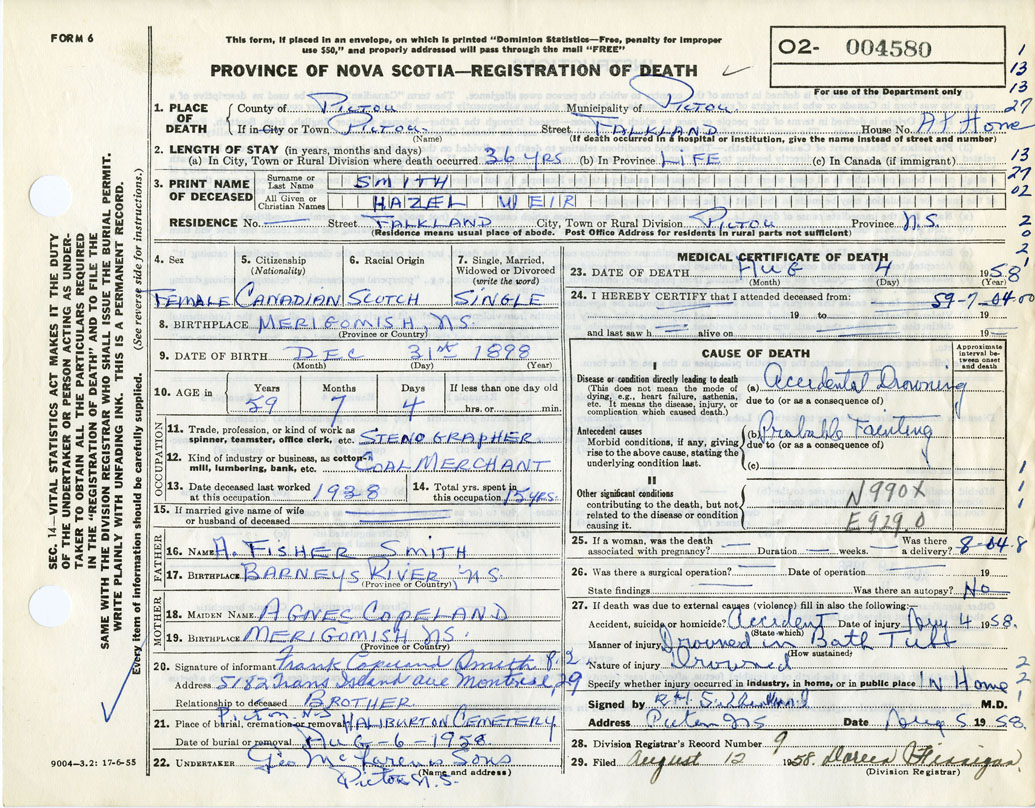 FORM 6
This form, if placed in an envelope, on which is printed "Dominion Statistics—Free, penalty for improper
use $50," and properly addressed will pass through the mail "FREE"
PROVINCE OF NOVA SCOTIA—REGISTRATION OF DEATH
02- 004580
For use of the Department only
1
13
13
27
13
27
02
2
0
2
1. PLACE OF DEATH
County of PICTOU Municipality of PICTOU
If in City or Town PICTOU. Street FALKLAND House No. AT HOME
(Name) (If death occurred in a hospital or institution, give the name instead of street and number)
2. LENGTH OF STAY (in years, months and days)
(a) In City, Town or Rural Division where death occurred 36 YRS (b) In Province LIFE (c) In Canada (if immigrant)
3. PRINT NAME OF DECEASED
Surname or Last Name SMITH
All Given or Christian Names HAZEL WEIR
RESIDENCE No. Street FALKLAND City, Town or Rural Division PICTOU Province N.S.
(Residence means usual place of abode. Post Office Address for residents in rural parts not sufficient)
4. Sex 5. Citizenship (Nationality) 6. Racial Origin 7. Single, Married, Widowed or Divorced (write the word)
FEMALE CANADIAN SCOTCH SINGLE
8. BIRTHPLACE MERIGOMISH, N.S.
(Province or Country)
9. DATE OF BIRTH DEC 31st 1898
(Month) (Day) (Year)
10. AGE in Years Months Days If less than one day old
59 7 4 hrs. or min.
OCCUPATION
11. Trade, profession, or kind of work as
spinner, teamster, office clerk, etc. STENOGRAPHER.
12. Kind of industry or business, as cotton-
mill, lumbering, bank, etc. COAL MERCHANT
13. Date deceased last worked at this occupation 1938 14. Total yrs. spent in this occupation 15 YRS.
15. If married give name of wife
or husband of deceased
FATHER
16. NAME A. FISHER SMITH
17. BIRTHPLACE BARNEYS RIVER, N.S.
(Province or Country)
MOTHER
18. MAIDEN NAME AGNES COPELAND
19. BIRTHPLACE MERIGOMISH N.S.
(Province or Country)
20. Signature of informant Frank Copeland Smith
Address 5182 Trans Island Ave Montreal, 29
Relationship to deceased BROTHER
21. Place of burial, cremation or removal Picton N.S HALIBURTON CEMETERY
Date of burial or removal AUG-6-1958
22. UNDERTAKER Geo McLarens Sons
(Name and address)
Pictou N.S.
9004—3.2: 17-6-55
MEDICAL CERTIFICATE OF DEATH
23. DATE OF DEATH AUG 4 1958
(Month) (Day) (Year)
24. I HEREBY CERTIFY that I attended deceased from:
59-7-04 00
19 to 19
and last saw h alive on 19
CAUSE OF DEATH
Approximate interval between onset and death
I
Disease or condition directly leading to death
(This does not mean the mode of
dying, e.g., heart failure, asthenia,
etc. It means the disease, injury, or
complication which caused death.)
(a) Accidental Drowning
due to (or as a consequence of)
Antecedent causes
Morbid conditions, if any, giving
rise to the above cause, stating the
underlying condition last.
(b) Probable Fainting
due to (or as a consequence of)
(c)
II
Other significant conditions
contributing to the death, but not
related to the disease or condition
causing it.
N990X
E929.0
1
1
1
25. If a woman, was the death
associated with pregnancy? Duration weeks. Was there a delivery? 8-04-8
26. Was there a surgical operation? Date of operation 19
State findings Was there an autopsy? No
27. If death was due to external causes (violence) fill in also the following:
Accident, suicide, or homicide? Accident Date of injury Aug 4 1958.
(State which)
Manner of injury Drowned in Bath Tubb
(How sustained)
Nature of injury Drowned
Specify whether injury occurred in industry, in home, or in public place IN Home
2
2
1
Signed by M.D.
Address Pictou NS Date Aug 5 1958.
28. Division Registrar's Record Number 9
29. Filed August 12 1958 Doreen Finnigan.
(Division Registrar)
SEC. 14—VITAL STATISTICS ACT MAKES IT THE DUTY
OF THE UNDERTAKER OR PERSON ACTING AS UNDER-
TAKER TO OBTAIN ALL THE PARTICULARS REQUIRED
IN THE "REGISTRATION OF DEATH" AND TO FILE THE
SAME WITH THE DIVISION REGISTRAR WHO SHALL ISSUE THE BURIAL PERMIT.
WRITE PLAINLY WITH UNFADING INK. THIS IS A PERMANENT RECORD.
Every item of information should be carefully supplied. (See reverse side for instructions.)